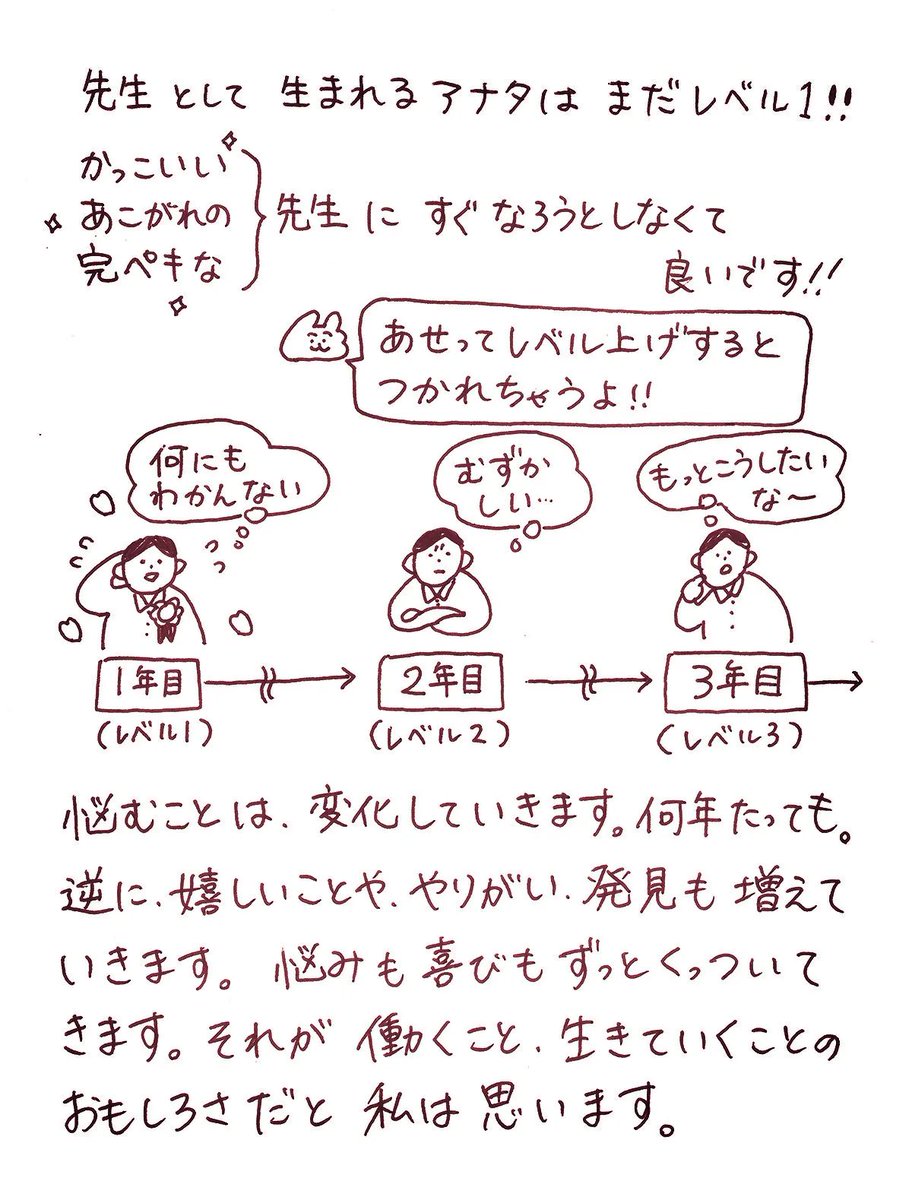 先生として 生まれるアナタは まだレベル1!!
かっこいい
あこがれの
完ペキな
先生に すぐなろうとしなくて
良いです!!
あせってレベル上げすると
つかれちゃうよ!!
何にも
わかんない
むずか
しい…
もっとこうしたい
な〜
1年目
2年目
3年目
(レベル1)
(レベル2)
(レベル3)
悩むことは、変化していきます。何年たっても。
逆に、嬉しいことや、やりがい、発見も 増えて
いきます。 悩みも喜びもずっとくっついて
きます。それが 働くこと、生きていくことの
おもしろさだと 私は思います。